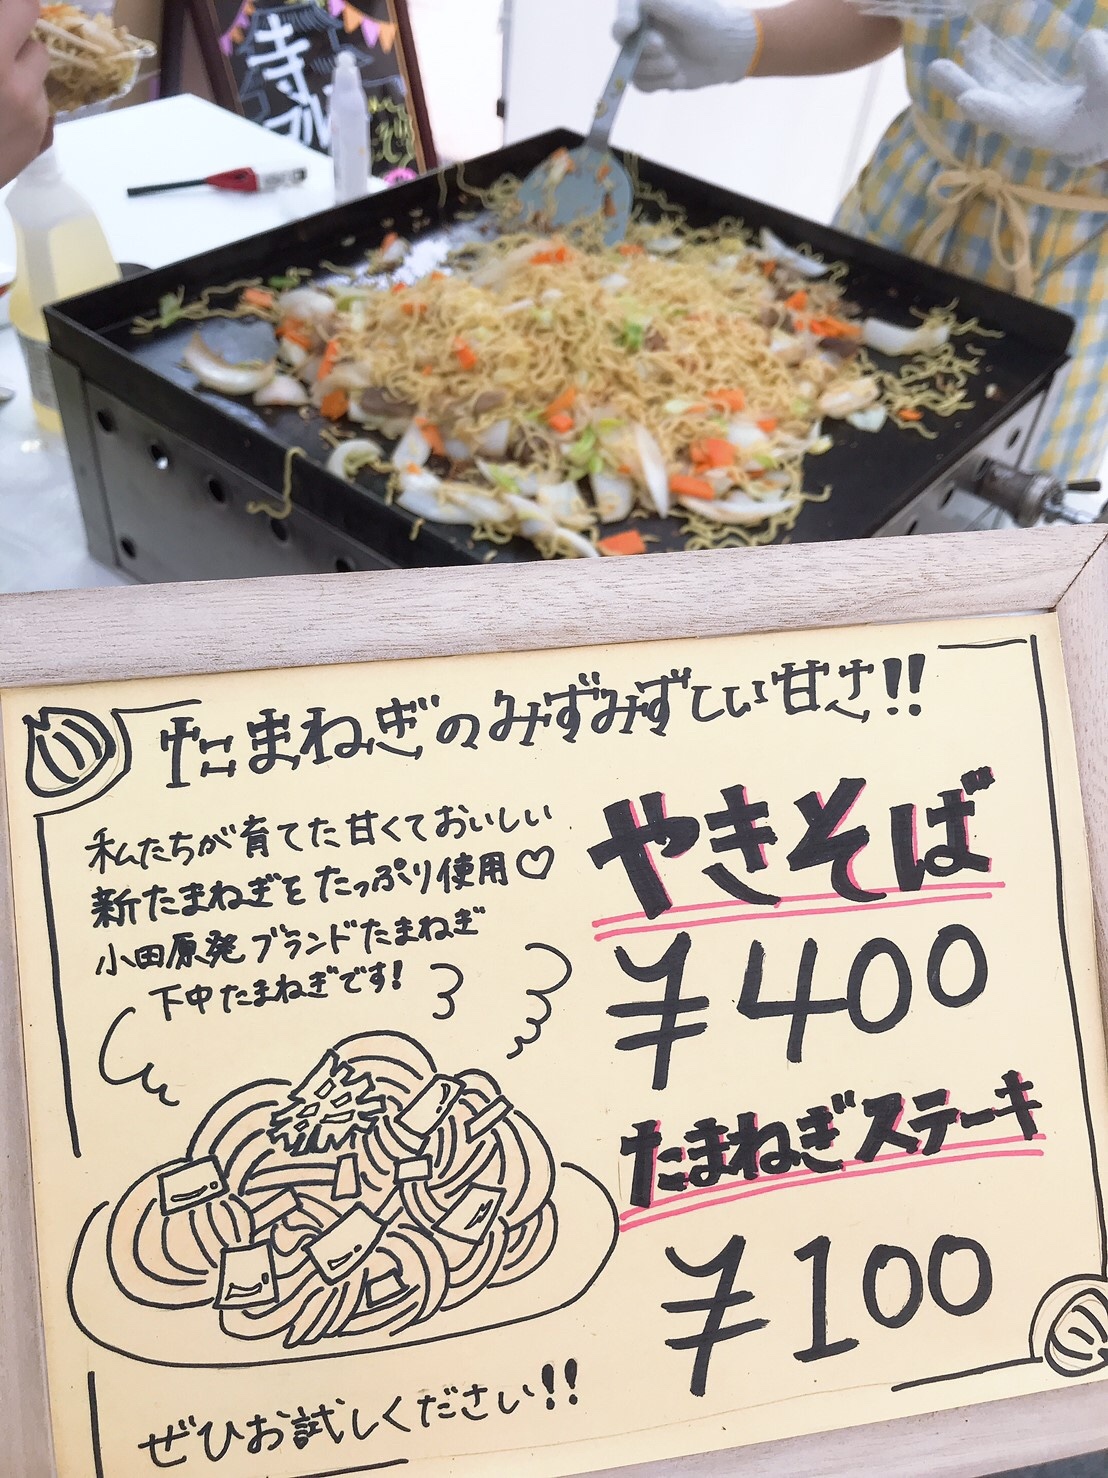 寺
たまねぎのみずみずしい甘さ!!
私たちが育てた甘くておいしい
新たまねぎをたっぷり使用♡
小田原発ブランドたまねぎ
下中たまねぎです!
やきそば
¥400
たまねぎステーキ
¥100
ぜひお試しください!!